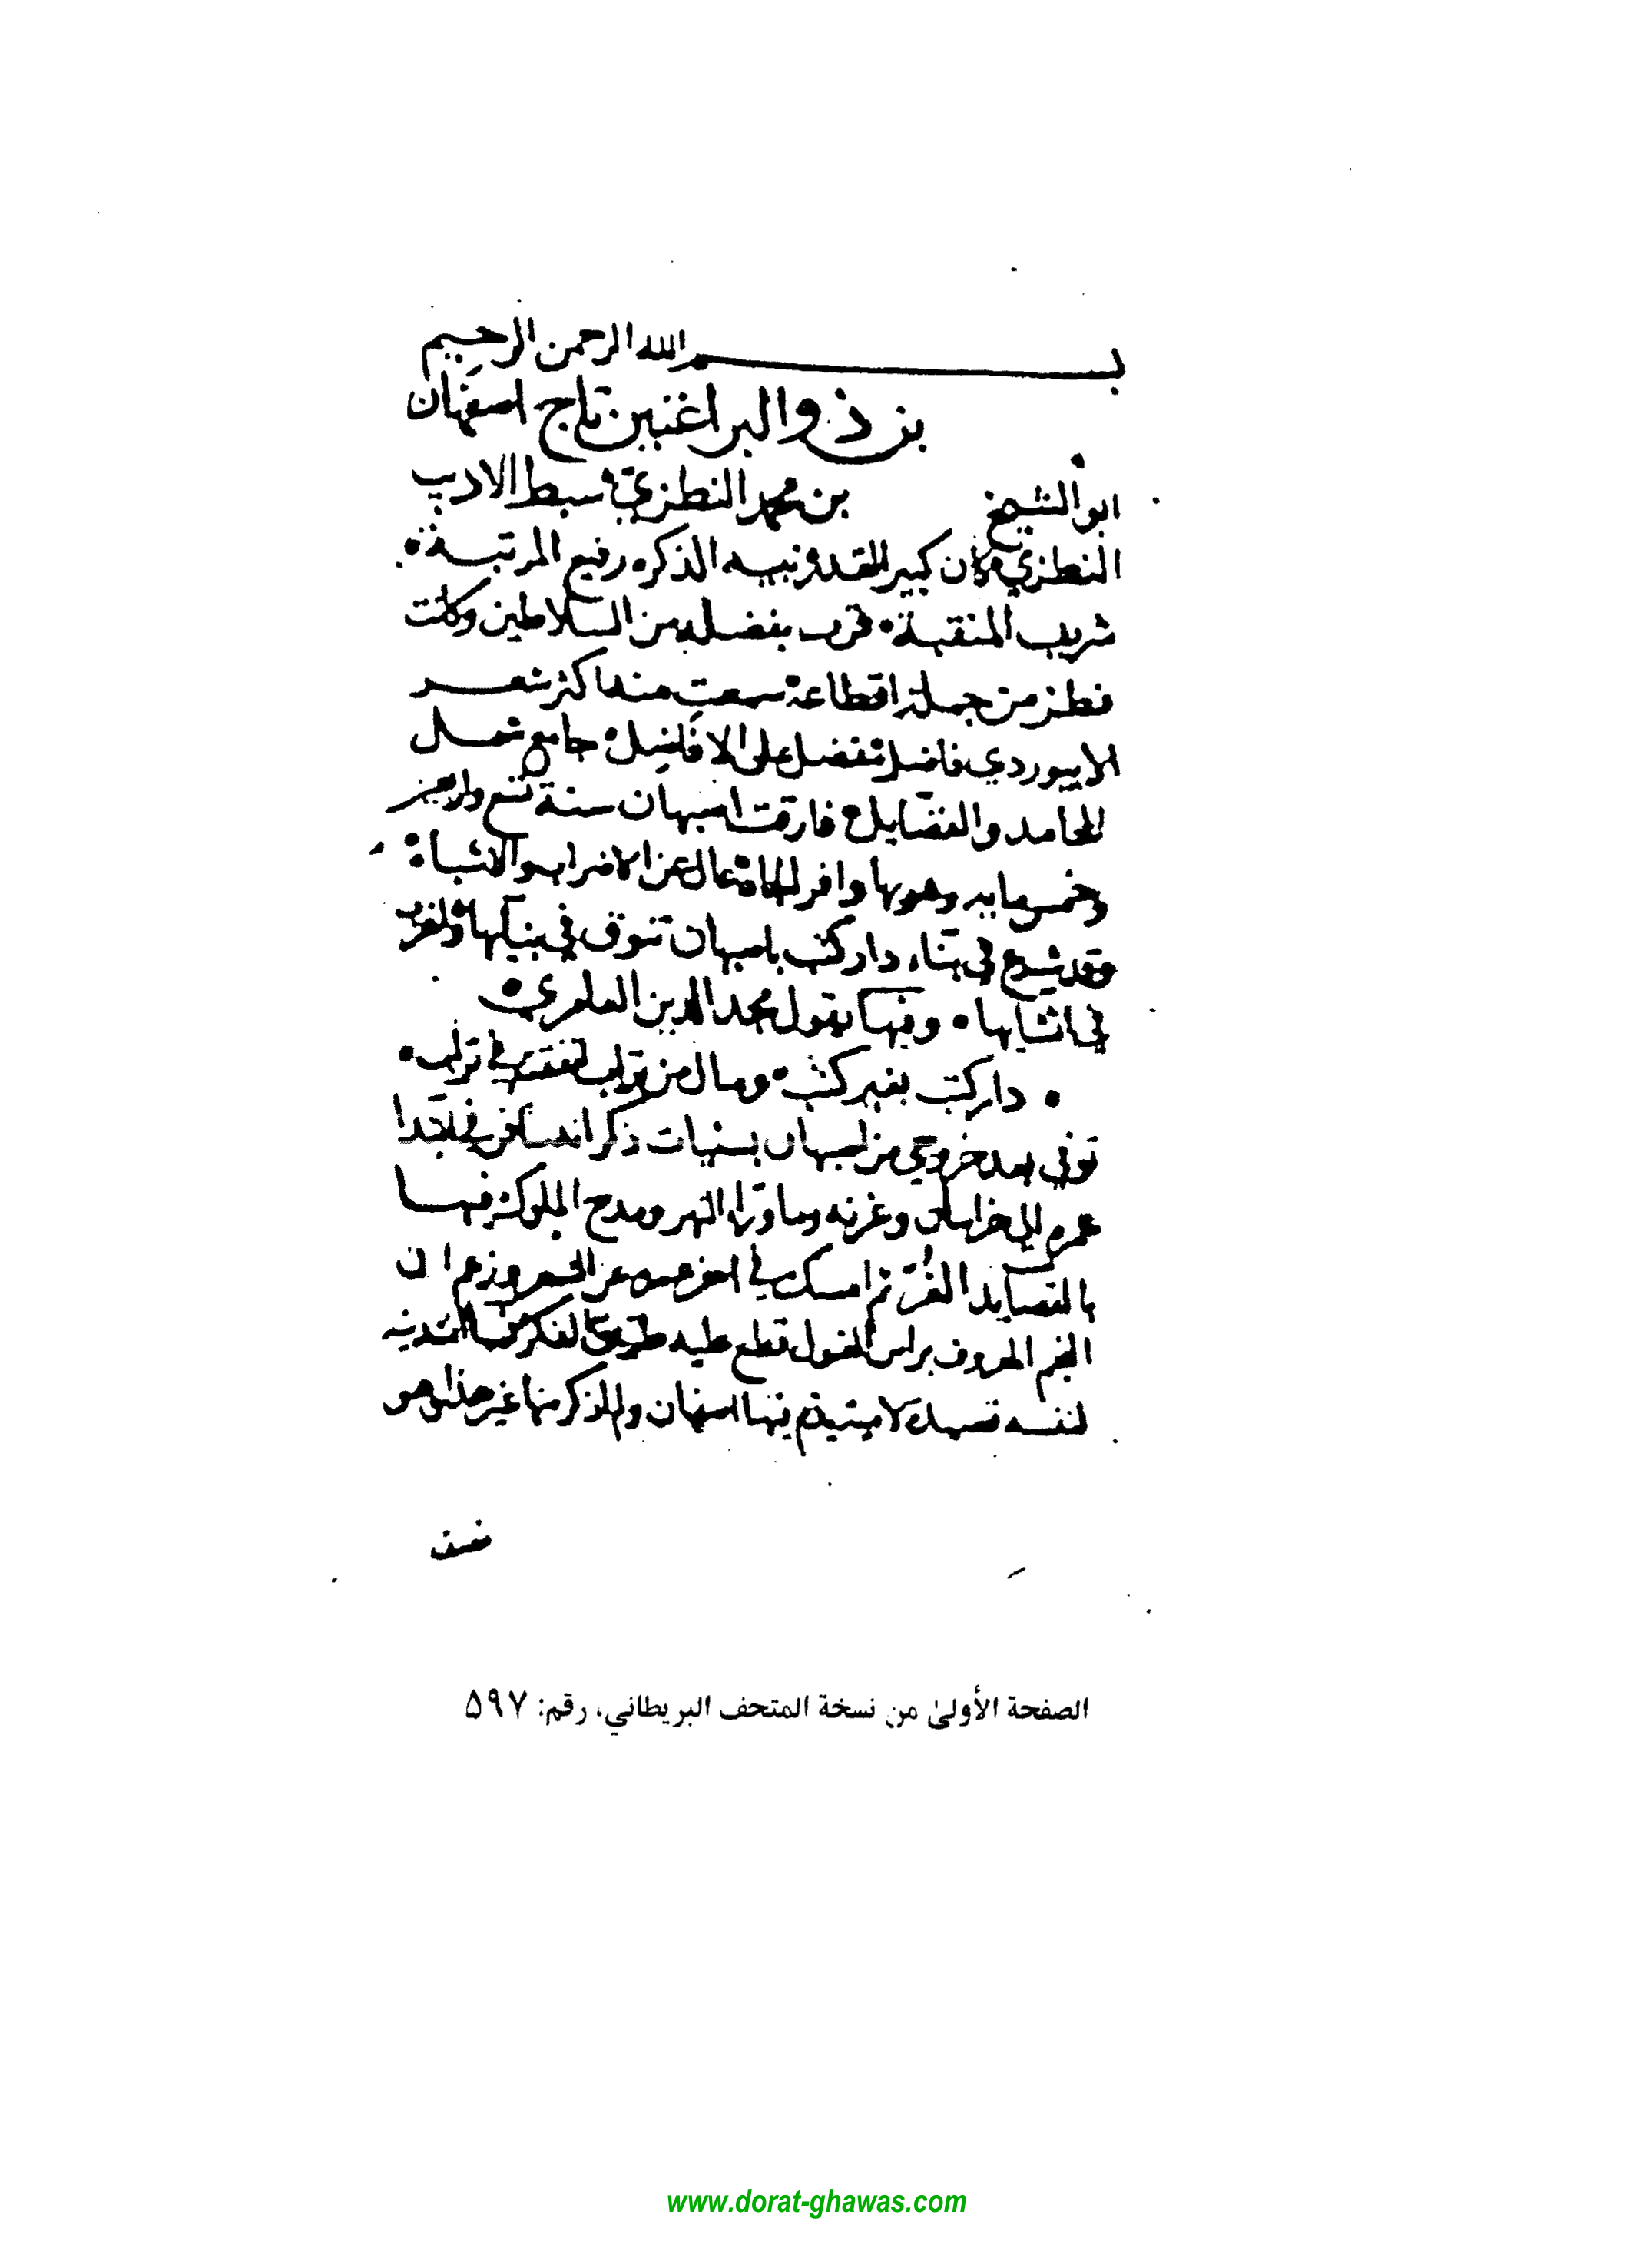 بسم الله الرحمن الرحيم
بن ذو البراعتين تاج اصفهان
ابو الشيخ بن محمد النطنزي سبط الاديب
النطنزي كان كبير القدر نبيه الذكر رفيع المرتبة
شريف المنقبة قرب بفضله من السلاطين وكانت
نطنز من جملة اقطاعه سمعت منه اكثر شعر
الابيوردي فاضل مفضل على الافاضل جامع شمل
المحامد والفضايل فارقت اصبهان سنة تسع واربعين
وخمسمايه وهو بها وافر الجاه عال عن الاضراب والاشباه
وقد شرع في بناء دار كتب باصبهان تنوق في بنيانها
في اثنايها وفيها يقول مجد الدين العلوي
دار كتب بغير كتب ومال من تراب تنفقه في تراب
توفي بعد خروجي من اصبهان بسنيات ذكر انه سافر في ابتدا
عمره الى خراسان وغزنه وما ورا النهر ومدح الملوك فيها
بالقصايد الغر ثم امسك في اخر عمره عن الشعر وزعم ان
النجم المعروف براس الغول قطع عليه طريق
لنفسه قصيدة لا يتيم فيها اصفهان ولم اذكر منها غير هذا وهو
الصفحة الأولىٰ من نسخة المتحف البريطاني، رقم: ۵۹۷
www.dorat-ghawas.com